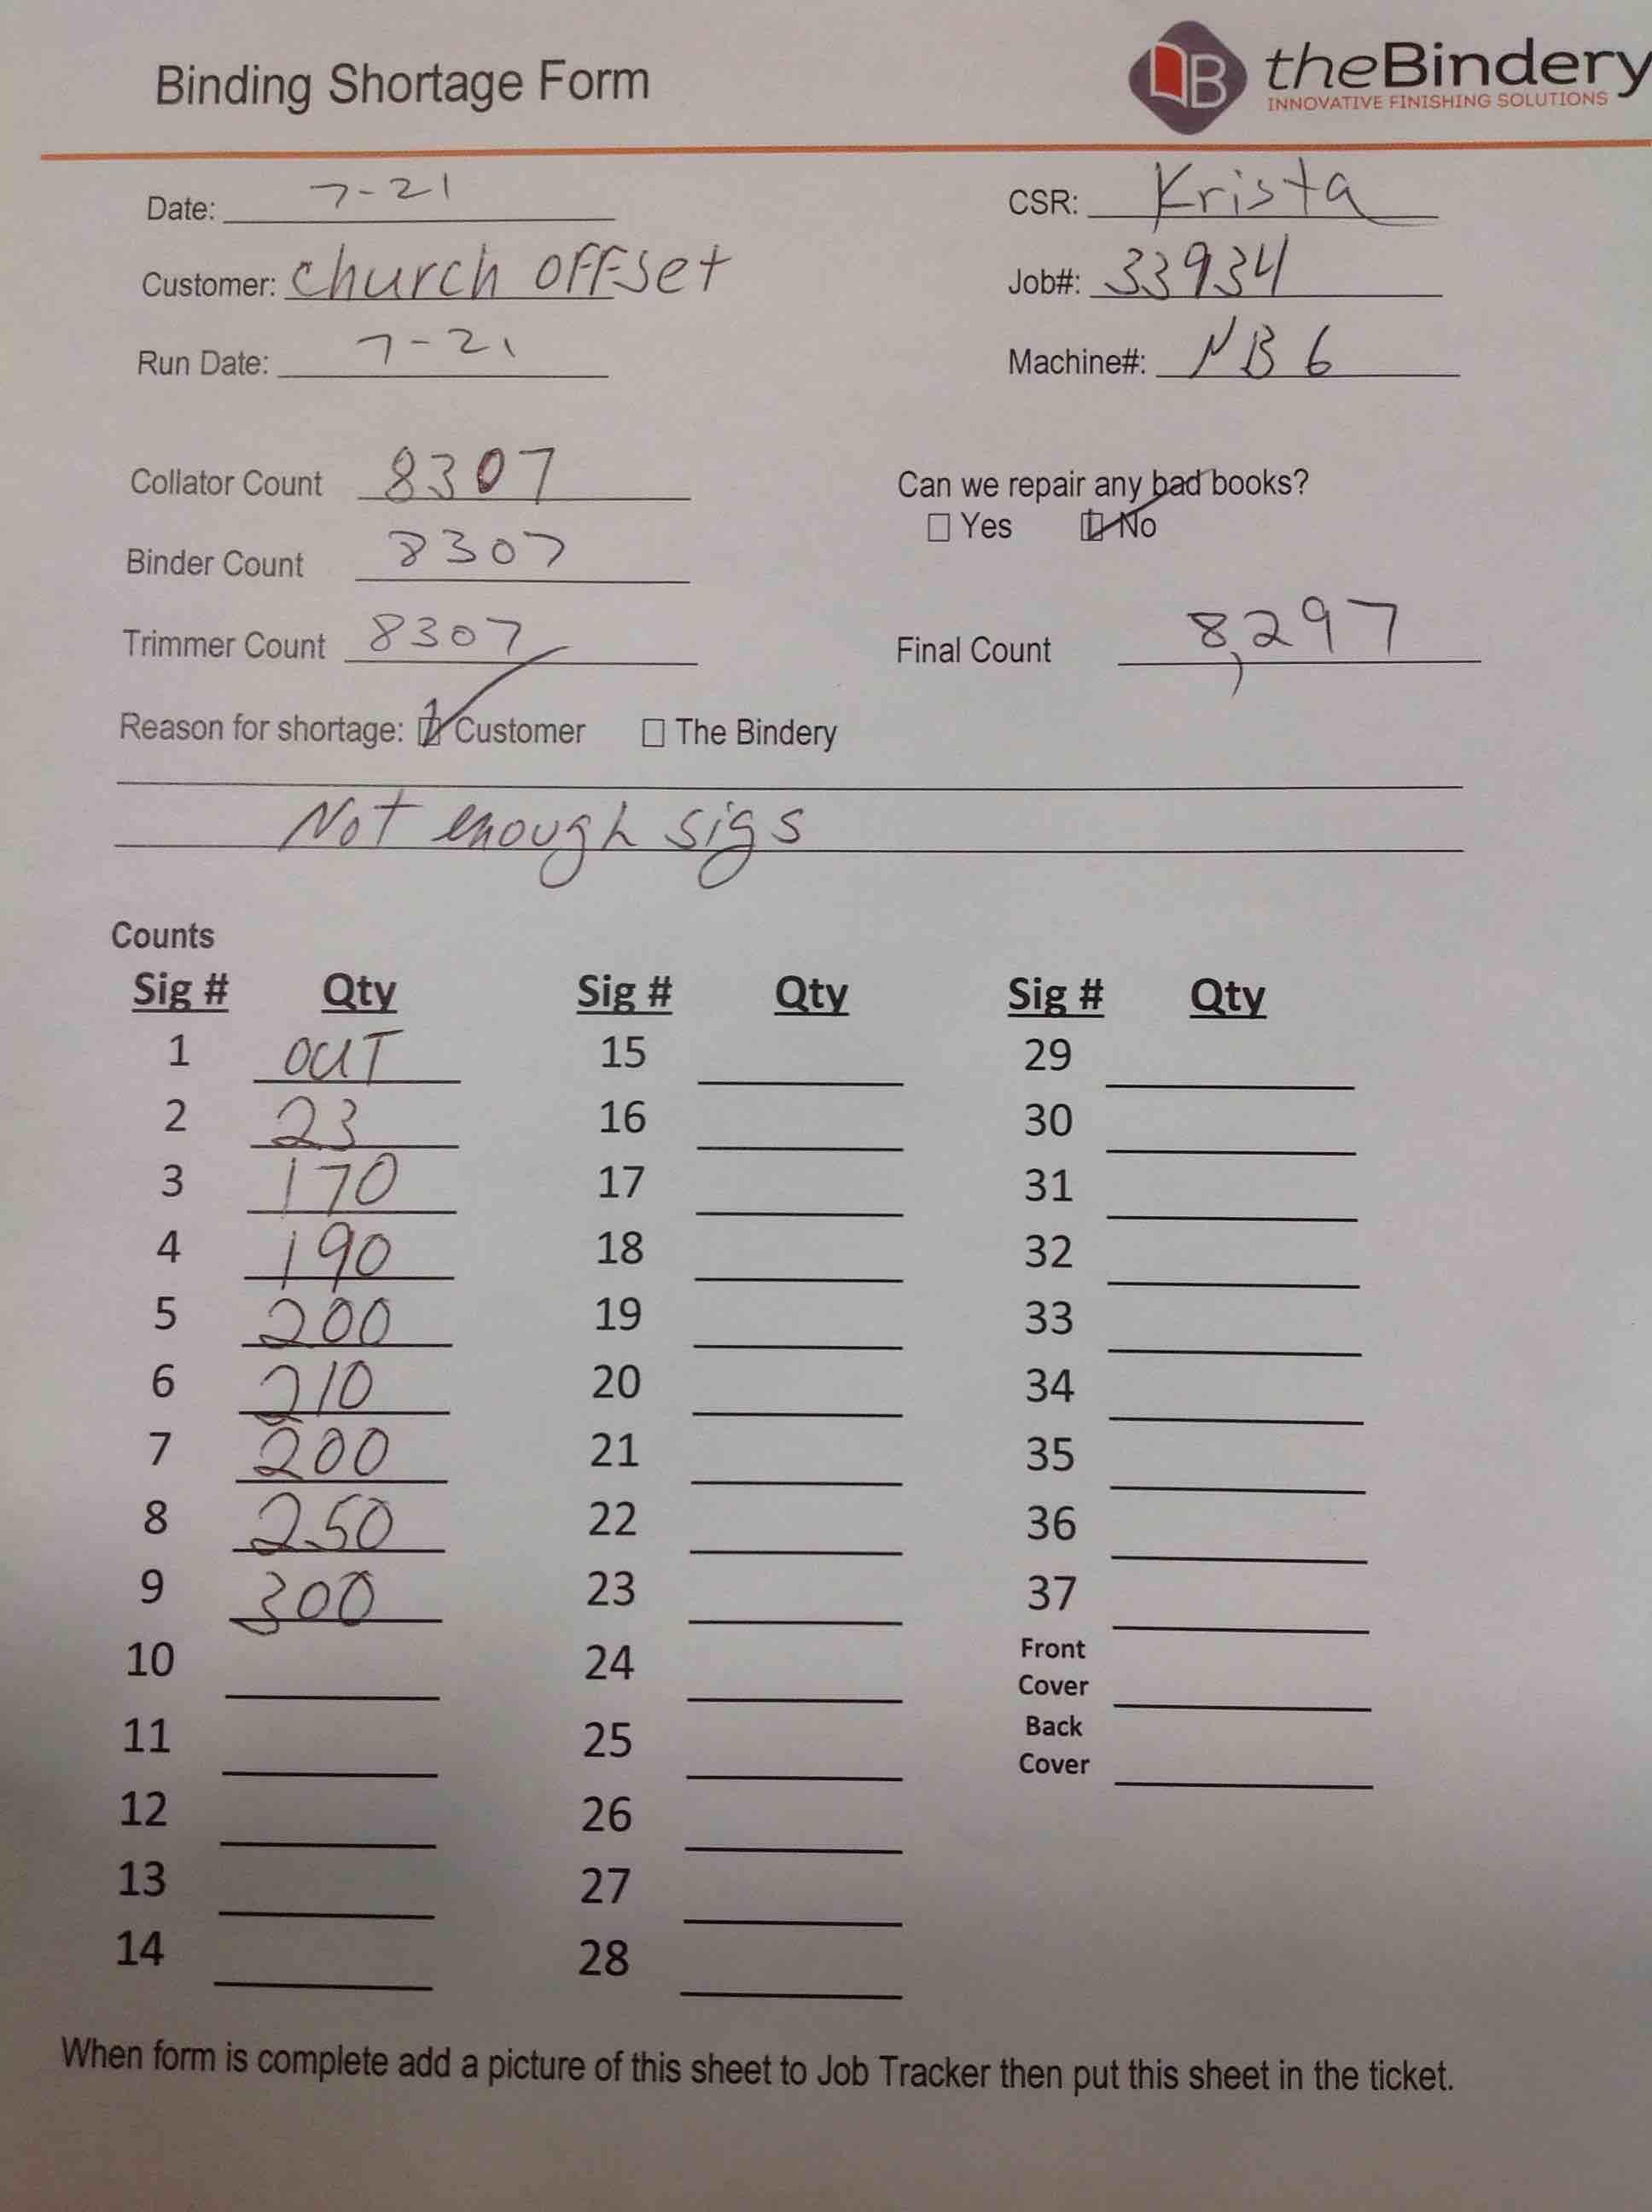 Binding Shortage Form
B theBindery
INNOVATIVE FINISHING SOLUTIONS
Date: 7-21 CSR: Krista
Customer: church offset Job#: 33934
Run Date: 7-21 Machine#: NB6
Collator Count 8307 Can we repair any bad books?
☐ Yes ☑ No
Binder Count 8307
Trimmer Count 8307 Final Count 8,297
Reason for shortage: ☑ Customer ☐ The Bindery
Not enough sigs
Counts
Sig # Qty Sig # Qty Sig # Qty
1 OUT 15 29
2 23 16 30
3 170 17 31
4 190 18 32
5 200 19 33
6 210 20 34
7 200 21 35
8 250 22 36
9 300 23 37
10 24 Front Cover
11 25 Back Cover
12 26
13 27
14 28
When form is complete add a picture of this sheet to Job Tracker then put this sheet in the ticket.